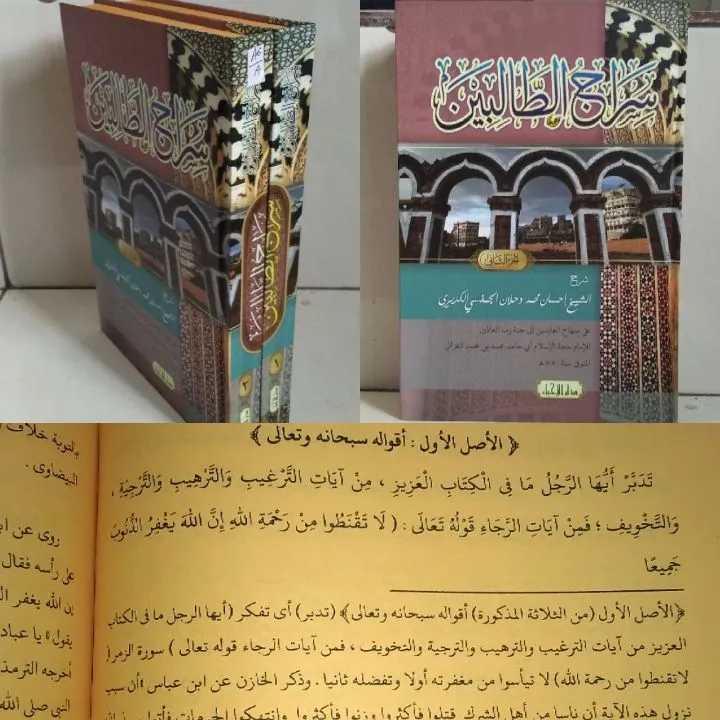 سِرَاجُ الطَّالِبِيْنَ
سراج الطالبين
٢
١
سِرَاجُ الطَّالِبِيْنَ
الجزء الثاني
شرح
الشيخ إحسان محمد دحلان الجمفسي الكديري
على منهاج العابدين إلى جنة رب العالمين
للإمام حجة الإسلام أبي حامد محمد بن محمد الغزالي
المتوفى سنة ٥٠٥ هـ
﴿ الأصل الأول : أقواله سبحانه وتعالى ﴾
تَدَبَّرْ أَيُّهَا الرَّجُلُ مَا فِى الْكِتَابِ الْعَزِيزِ ، مِنْ آيَاتِ التَّرْغِيبِ وَالتَّرْهِيبِ وَالتَّرْجِيَةِ ،
وَالتَّخْوِيفِ ؛ فَمِنْ آيَاتِ الرَّجَاءِ قَوْلُهُ تَعَالَى : ( لَا تَقْنَطُوا مِنْ رَحْمَةِ اللهِ إِنَّ اللهَ يَغْفِرُ الذُّنُوبَ
جَمِيعًا
﴿الأصل الأول (من الثلاثة المذكورة) أقواله سبحانه وتعالى﴾ (تدبر) أى تفكر (أيها الرجل ما فى الكتاب
العزيز من آيات الترغيب والترهيب والترجية والتخويف ، فمن آيات الرجاء قوله تعالى ) سورة الزمر (
لا تقنطوا من رحمة الله) لا تيأسوا من مغفرته أولا وتفضله ثانيا . وذكر الخازن عن ابن عباس «أن سبب
نزول هذه الآية أن ناسا من أهل الشرك قتلوا فأكثروا وزنوا فأكثروا وانتهكوا الحرمات فأتوا
بالتوبة خلاف
البيضاوى .
روى عن ابن
على رأسه فقال
إن الله يغفر الذ
يقول « يا عباد
أخرجه الترمذ
النبي صلى الله